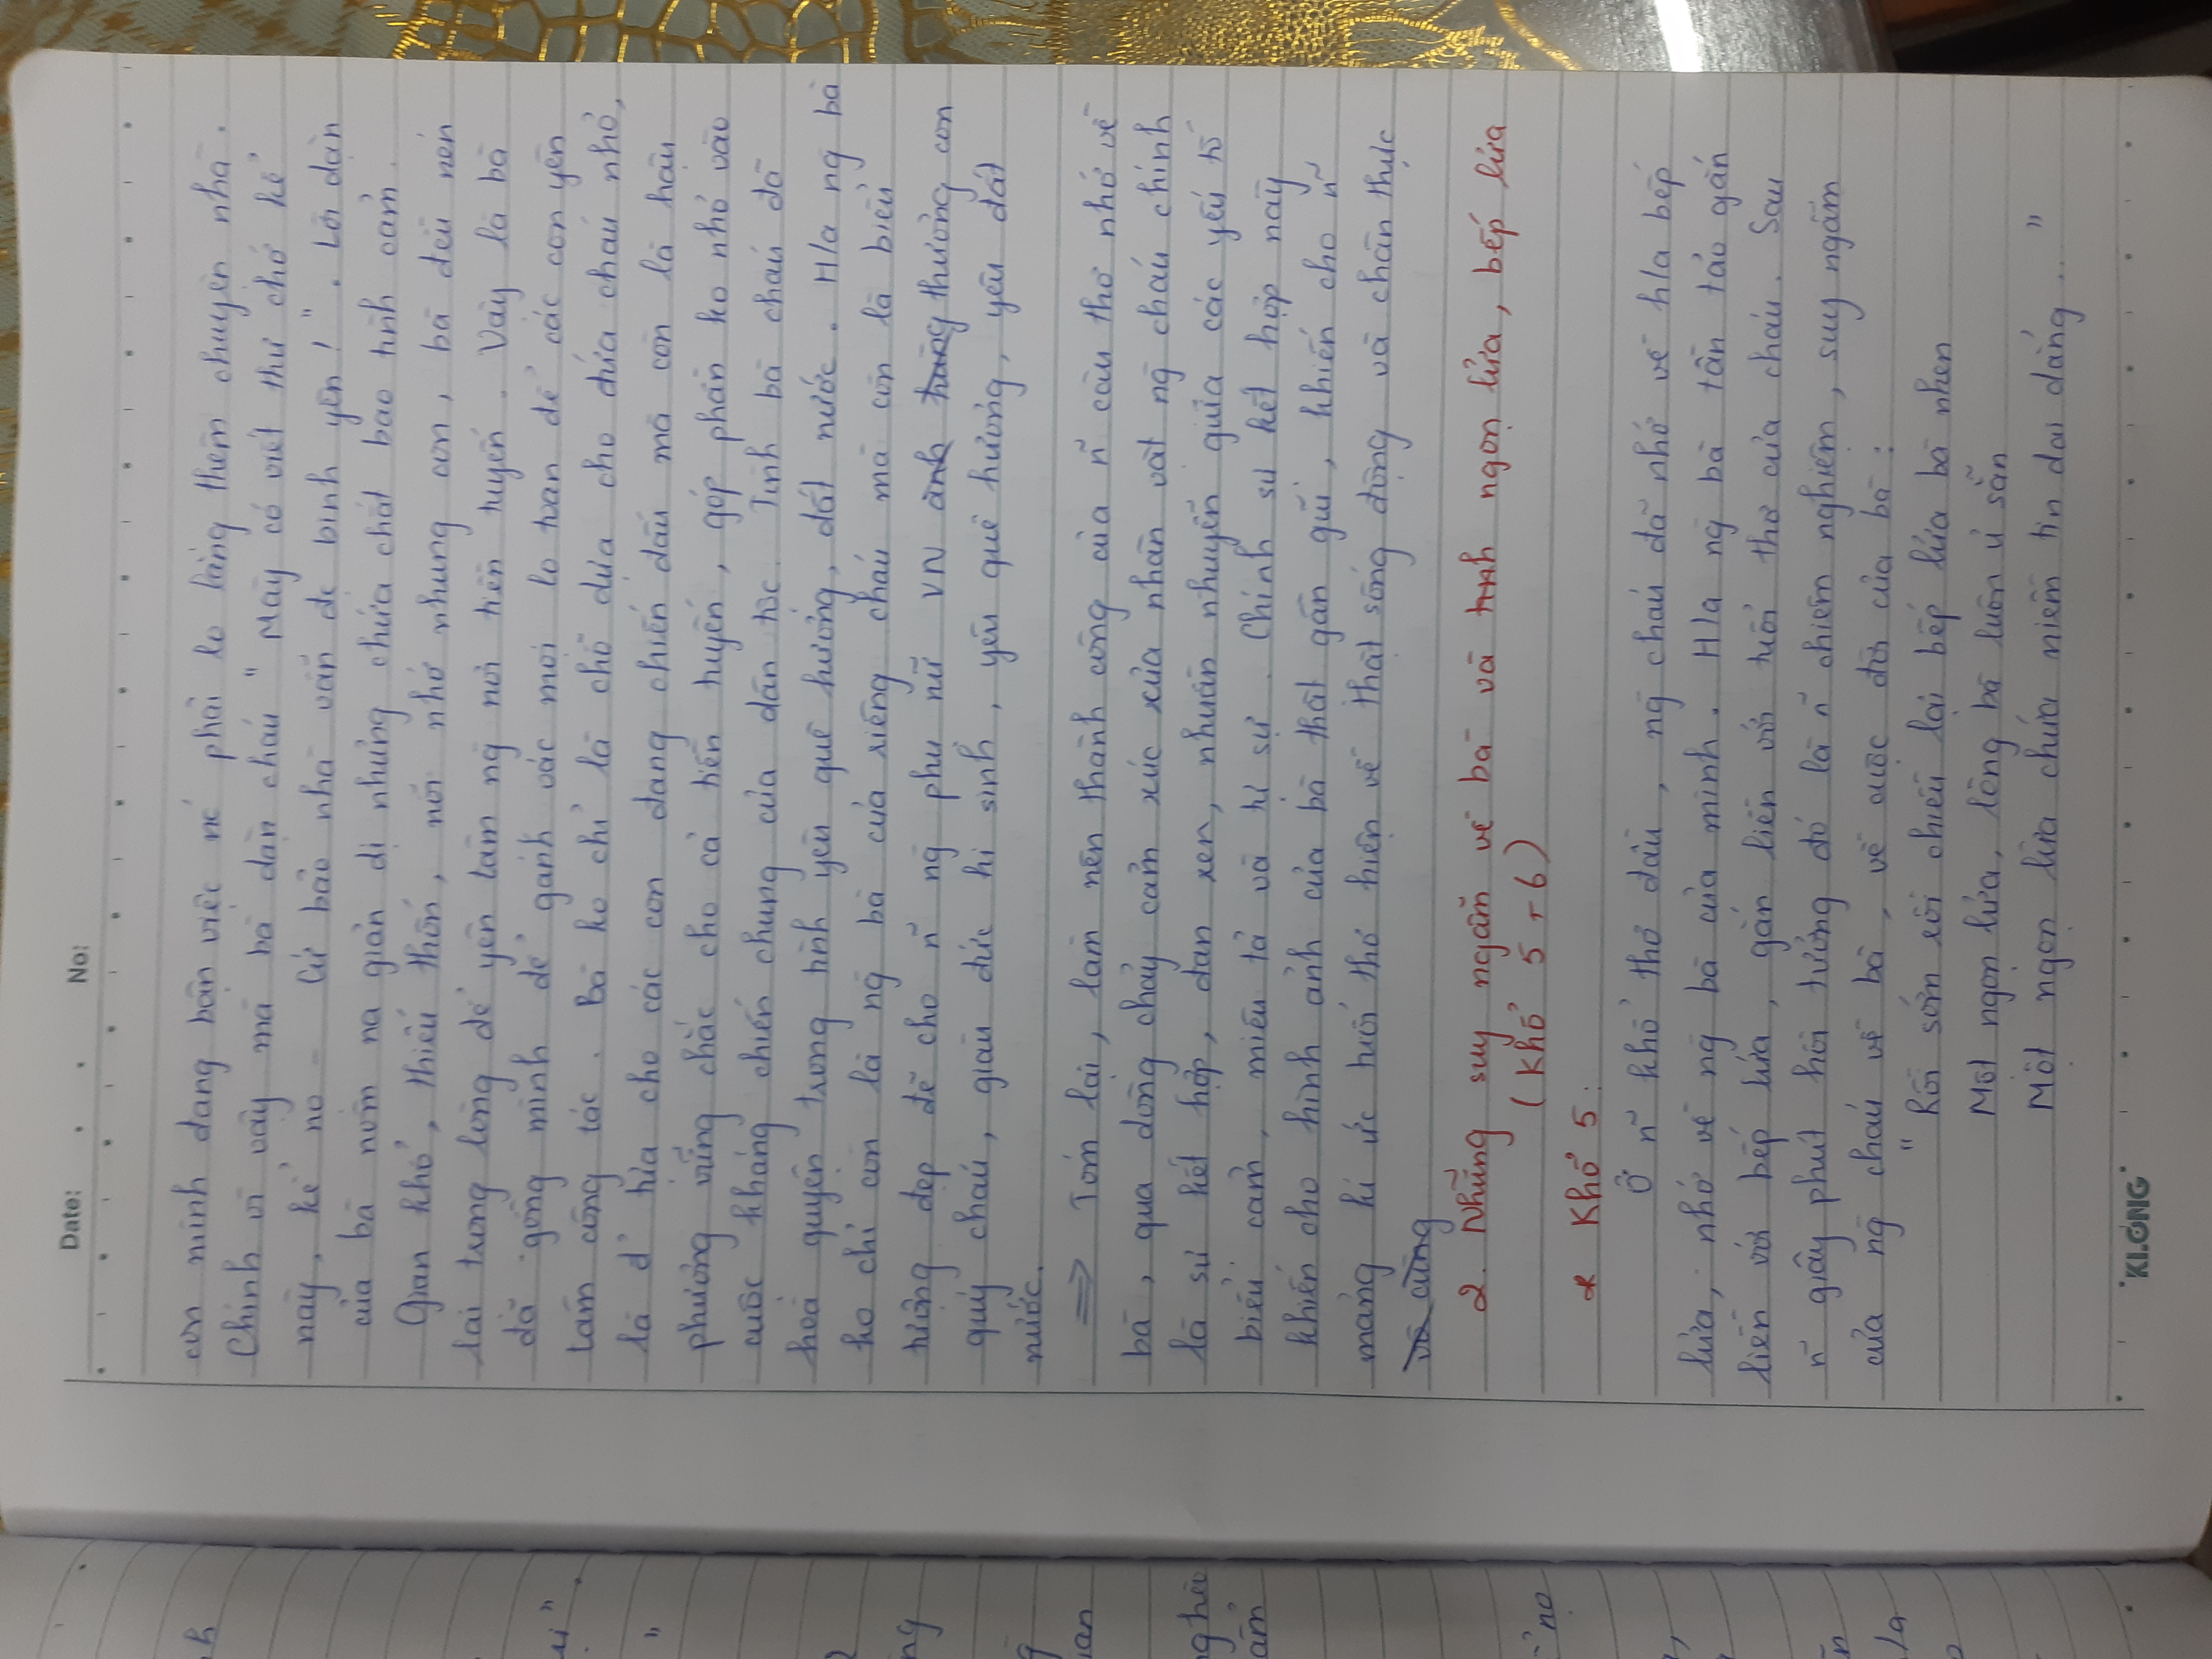 Date: . . No:
con mình đang bận việc nc phải lo lắng thêm chuyện nhà.
Chính vì vậy mà bà dặn cháu " Mày có viết thư chớ kể
này, kể nọ - Cứ bảo nhà vẫn đc bình yên! ". Lời dặn
của bà nôm na giản dị nhưng chứa chất bao tình cảm.
Gian khổ, thiếu thốn, nỗi nhớ nhung con, bà đều nén
lại trong lòng để yên tâm ng nơi tiền tuyến. Vậy là bà
đã gồng mình để gánh vác mọi lo toan để các con yên
tâm công tác. Bà ko chỉ là chỗ dựa cho đứa cháu nhỏ,
là đ' tựa cho các con đang chiến đấu mà còn là hậu
phương vững chắc cho cả tiền tuyến, góp phần ko nhỏ vào
cuộc kháng chiến chung của dân tộc. Tình bà cháu đã
hoà quyện trong tình yêu quê hương, đất nước. H/a ng bà
ko chỉ còn là ng bà của riêng cháu mà còn là biểu
tượng đẹp đẽ cho ñ ng phụ nữ VN anh hùng thương con
quý cháu, giàu đức hi sinh, yêu quê hương, yêu đất
nước.
=> Tóm lại, làm nên thành công của ñ câu thơ nhớ về
bà, qua dòng chảy cảm xúc xủa nhân vật ng cháu chính
là sự kết hợp, đan xen, nhuần nhuyễn giữa các yếu tố
biểu cảm, miêu tả và tự sự. Chính sự kết hợp này
khiến cho hình ảnh của bà thật gần gũi, khiến cho ñ
mảng kí ức tuổi thơ hiện về thật sống động và chân thực
vô cùng
2. Những suy ngẫm về bà và hình ngọn lửa, bếp lửa
(Khổ 5 + 6)
* Khổ 5:
Ở ñ khổ thơ đầu, ng cháu đã nhớ về h/a bếp
lửa, nhớ về ng bà của mình. H/a ng bà tần tảo gắn
liền với bếp lửa, gắn liền với tuổi thơ của cháu. Sau
ñ giây phút hồi tưởng đó là ñ chiêm nghiệm, suy ngẫm
của ng cháu về bà, về cuộc đời của bà:
" Rồi sớm rồi chiều lại bếp lửa bà nhen
Một ngọn lửa, lòng bà luôn ủ sẵn
Một ngọn lửa chứa niềm tin dai dẳng... "
KLONG
h
ui".
"
ng
g
ian
nghèo
ảm
nọ
la